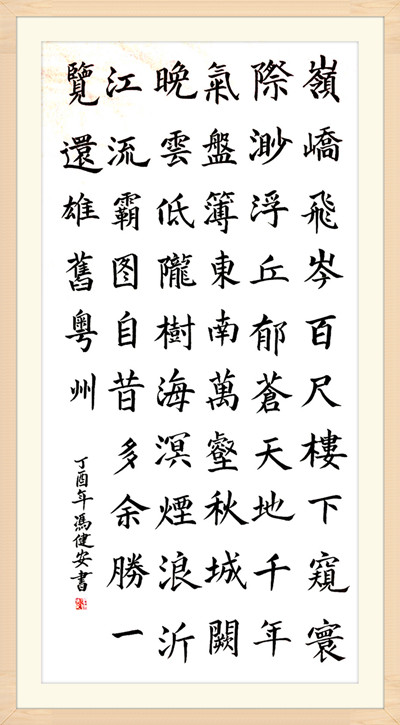 嶺嶠飛岑百尺樓下窺寰
際渺浮丘郁蒼天地千年
氣盤簿東南萬壑秋城闕
晚雲低隴樹海溟煙浪沂
江流霸图自昔多余勝一
覽還雄舊粵州
丁酉年馮健安書